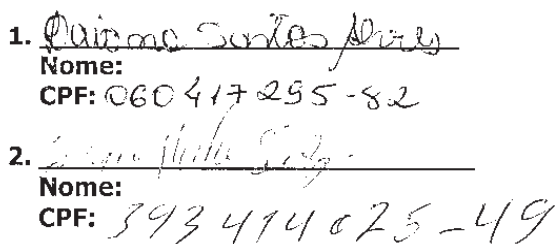 1. Daiane Santos Alves
Nome:
CPF: 060417295-82
2.
Nome:
CPF: 393414025-49